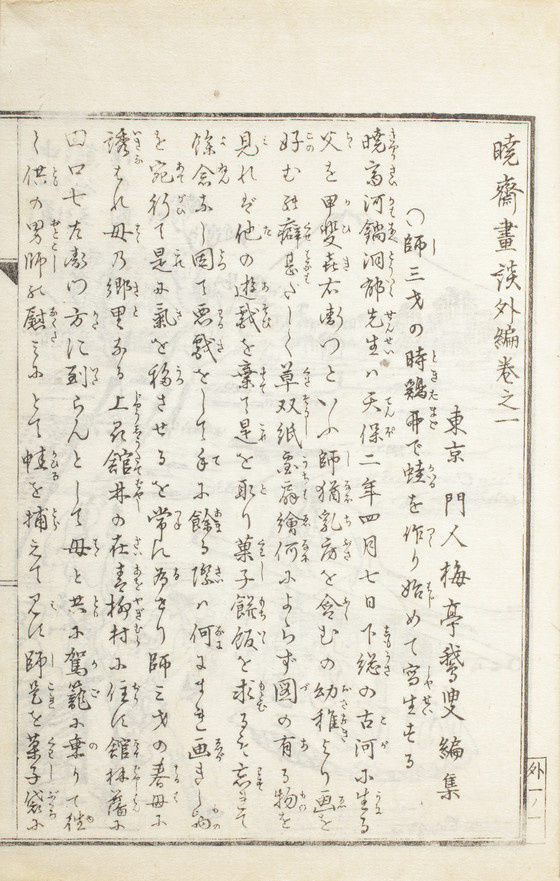 暁齋畫談外編巻之一
東京 門人 梅亭鵞叟編集
〇師三才の時鶏卵で蛙を作り始めて寫生する
暁斎河鍋洞郁先生ハ天保二年四月七日下総の古河に生る
父を甲斐喜右衛門といふ師猶乳房を含むの幼稚より画を
好むの癖甚だしく草双紙 繪何によらず図の有る物を
見れば他の遊戯を棄て是を取り菓子餅飯を求るを忘るゝ
餘念なし因て悪戯をして手に餘る際ハ何にせよ画きし物
を宛行て是に氣を移させるを常に為せり師三才の春母に
誘はれ母の郷里なる上 館林の在青柳村に住す館林藩に
田口七左衛門方に到らんとして母と共に駕籠に乗りて
く供の男師の慰みにとて蛙を捕えて 師是を菓子袋に
外一ノ一